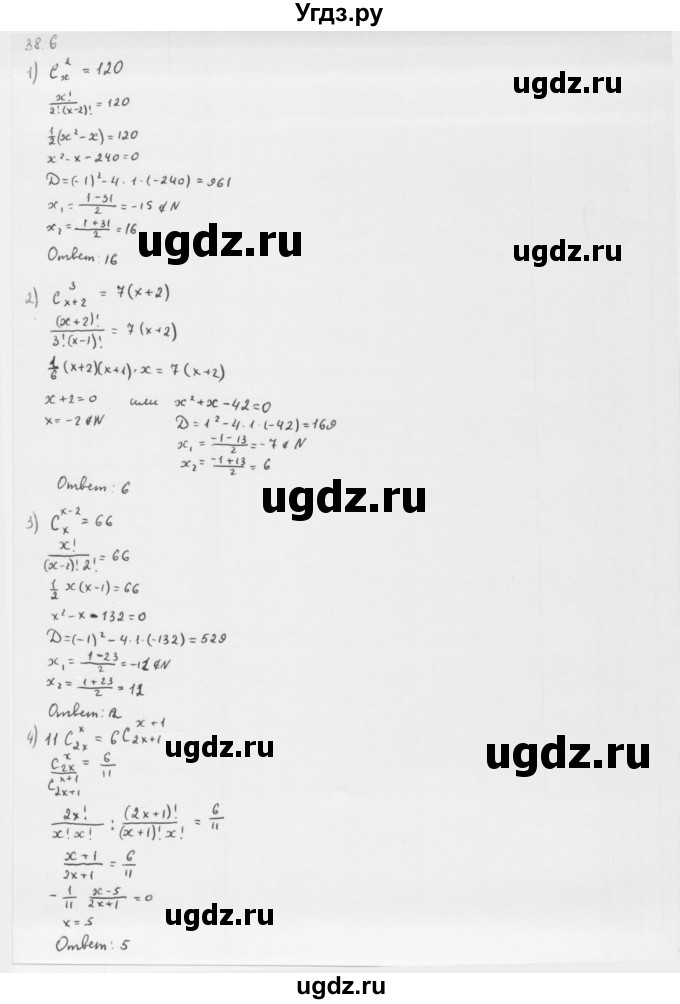 Угдз.ру
38.6
1) C_x^2 = 120
x!/2!(x-2)! = 120
1/2(x² - x) = 120
x² - x - 240 = 0
D = (-1)² - 4·1·(-240) = 961
x₁ = (1-31)/2 = -15 ∉ N
x₂ = (1+31)/2 = 16
ugdz.ru
ugdz.ru
Ответ: 16
ugdz.ru
2) C_{x+2}^3 = 7(x+2)
(x+2)!/3!(x-1)! = 7(x+2)
ugdz.ru
ugdz.ru
1/6 (x+2)(x+1)·x = 7(x+2)
x+2=0 или x² + x - 42 = 0
x = -2 ∉ N D = 1² - 4·1·(-42) = 169
x₁ = (-1-13)/2 = -7 ∉ N
x₂ = (-1+13)/2 = 6
Ответ: 6
ugdz.ru
ugdz.ru
3) C_x^{x-2} = 66
x!/(x-2)!2! = 66
1/2 x(x-1) = 66
x² - x - 132 = 0
D = (-1)² - 4·1·(-132) = 529
ugdz.ru
ugdz.ru
x₁ = (1-23)/2 = -11 ∉ N
x₂ = (1+23)/2 = 12
Ответ: 12
4) 11 C_{2x}^x = 6 C_{2x+1}^{x+1}
ugdz.ru
ugdz.ru
C_{2x}^x / C_{2x+1}^{x+1} = 6/11
2x!/x!x! : (2x+1)!/(x+1)!x! = 6/11
(x+1)/(2x+1) = 6/11
-1/11 (x-5)/(2x+1) = 0
x = 5
ugdz.ru
ugdz.ru
Ответ: 5
ugdz.ru